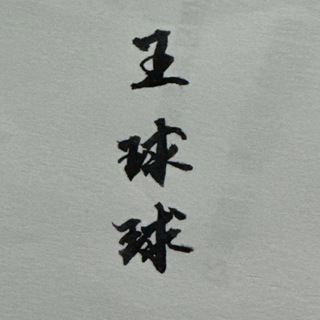 王球球